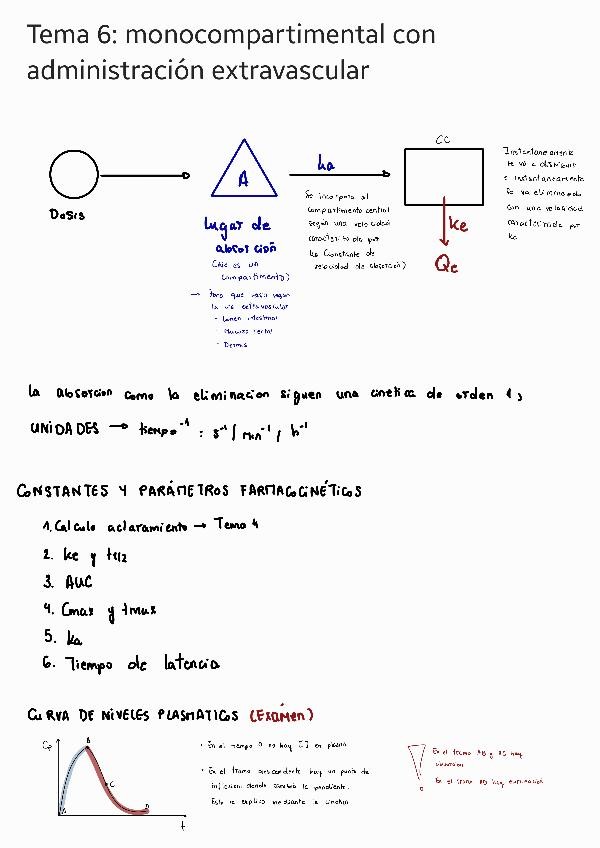 Tema 6: monocompartimental con
administración extravascular
Dosis
A
Lugar de
absorción
(No es un
compartimento)
→ Tono que varía según
la vía extravascular
- Lumen intestinal
- Mucosa rectal
- Dermis
ka
Se incorpora al
compartimento central
según una velocidad
característica por
ka (constante de
velocidad de absorción)
CC
ke
Qe
Instantáneamente
se va a distribuir
e instantáneamente
se va eliminando
con una velocidad
caracterizada por
ke
La absorcion como la eliminacion siguen una cinetica de orden 1,
UNIDADES → tiempo⁻¹ : s⁻¹ / min⁻¹ / h⁻¹
CONSTANTES Y PARÁMETROS FARMACOCINÉTICOS
1. Calculo aclaramiento → Tema 4
2. ke y t1/2
3. AUC
4. Cmax y tmax
5. ka
6. Tiempo de latencia
CURVA DE NIVELES PLASMATICOS (Exámen)
Cp
A
B
C
D
t
· En el tiempo 0 no hay [ ] en plasma
· En el tramo descendente hay un punto de
inflexion donde cambia la pendiente.
Esto se explica mediante la cinética
!
En el tramo AB y BC hay
absorción
En el tramo AD hay eliminación